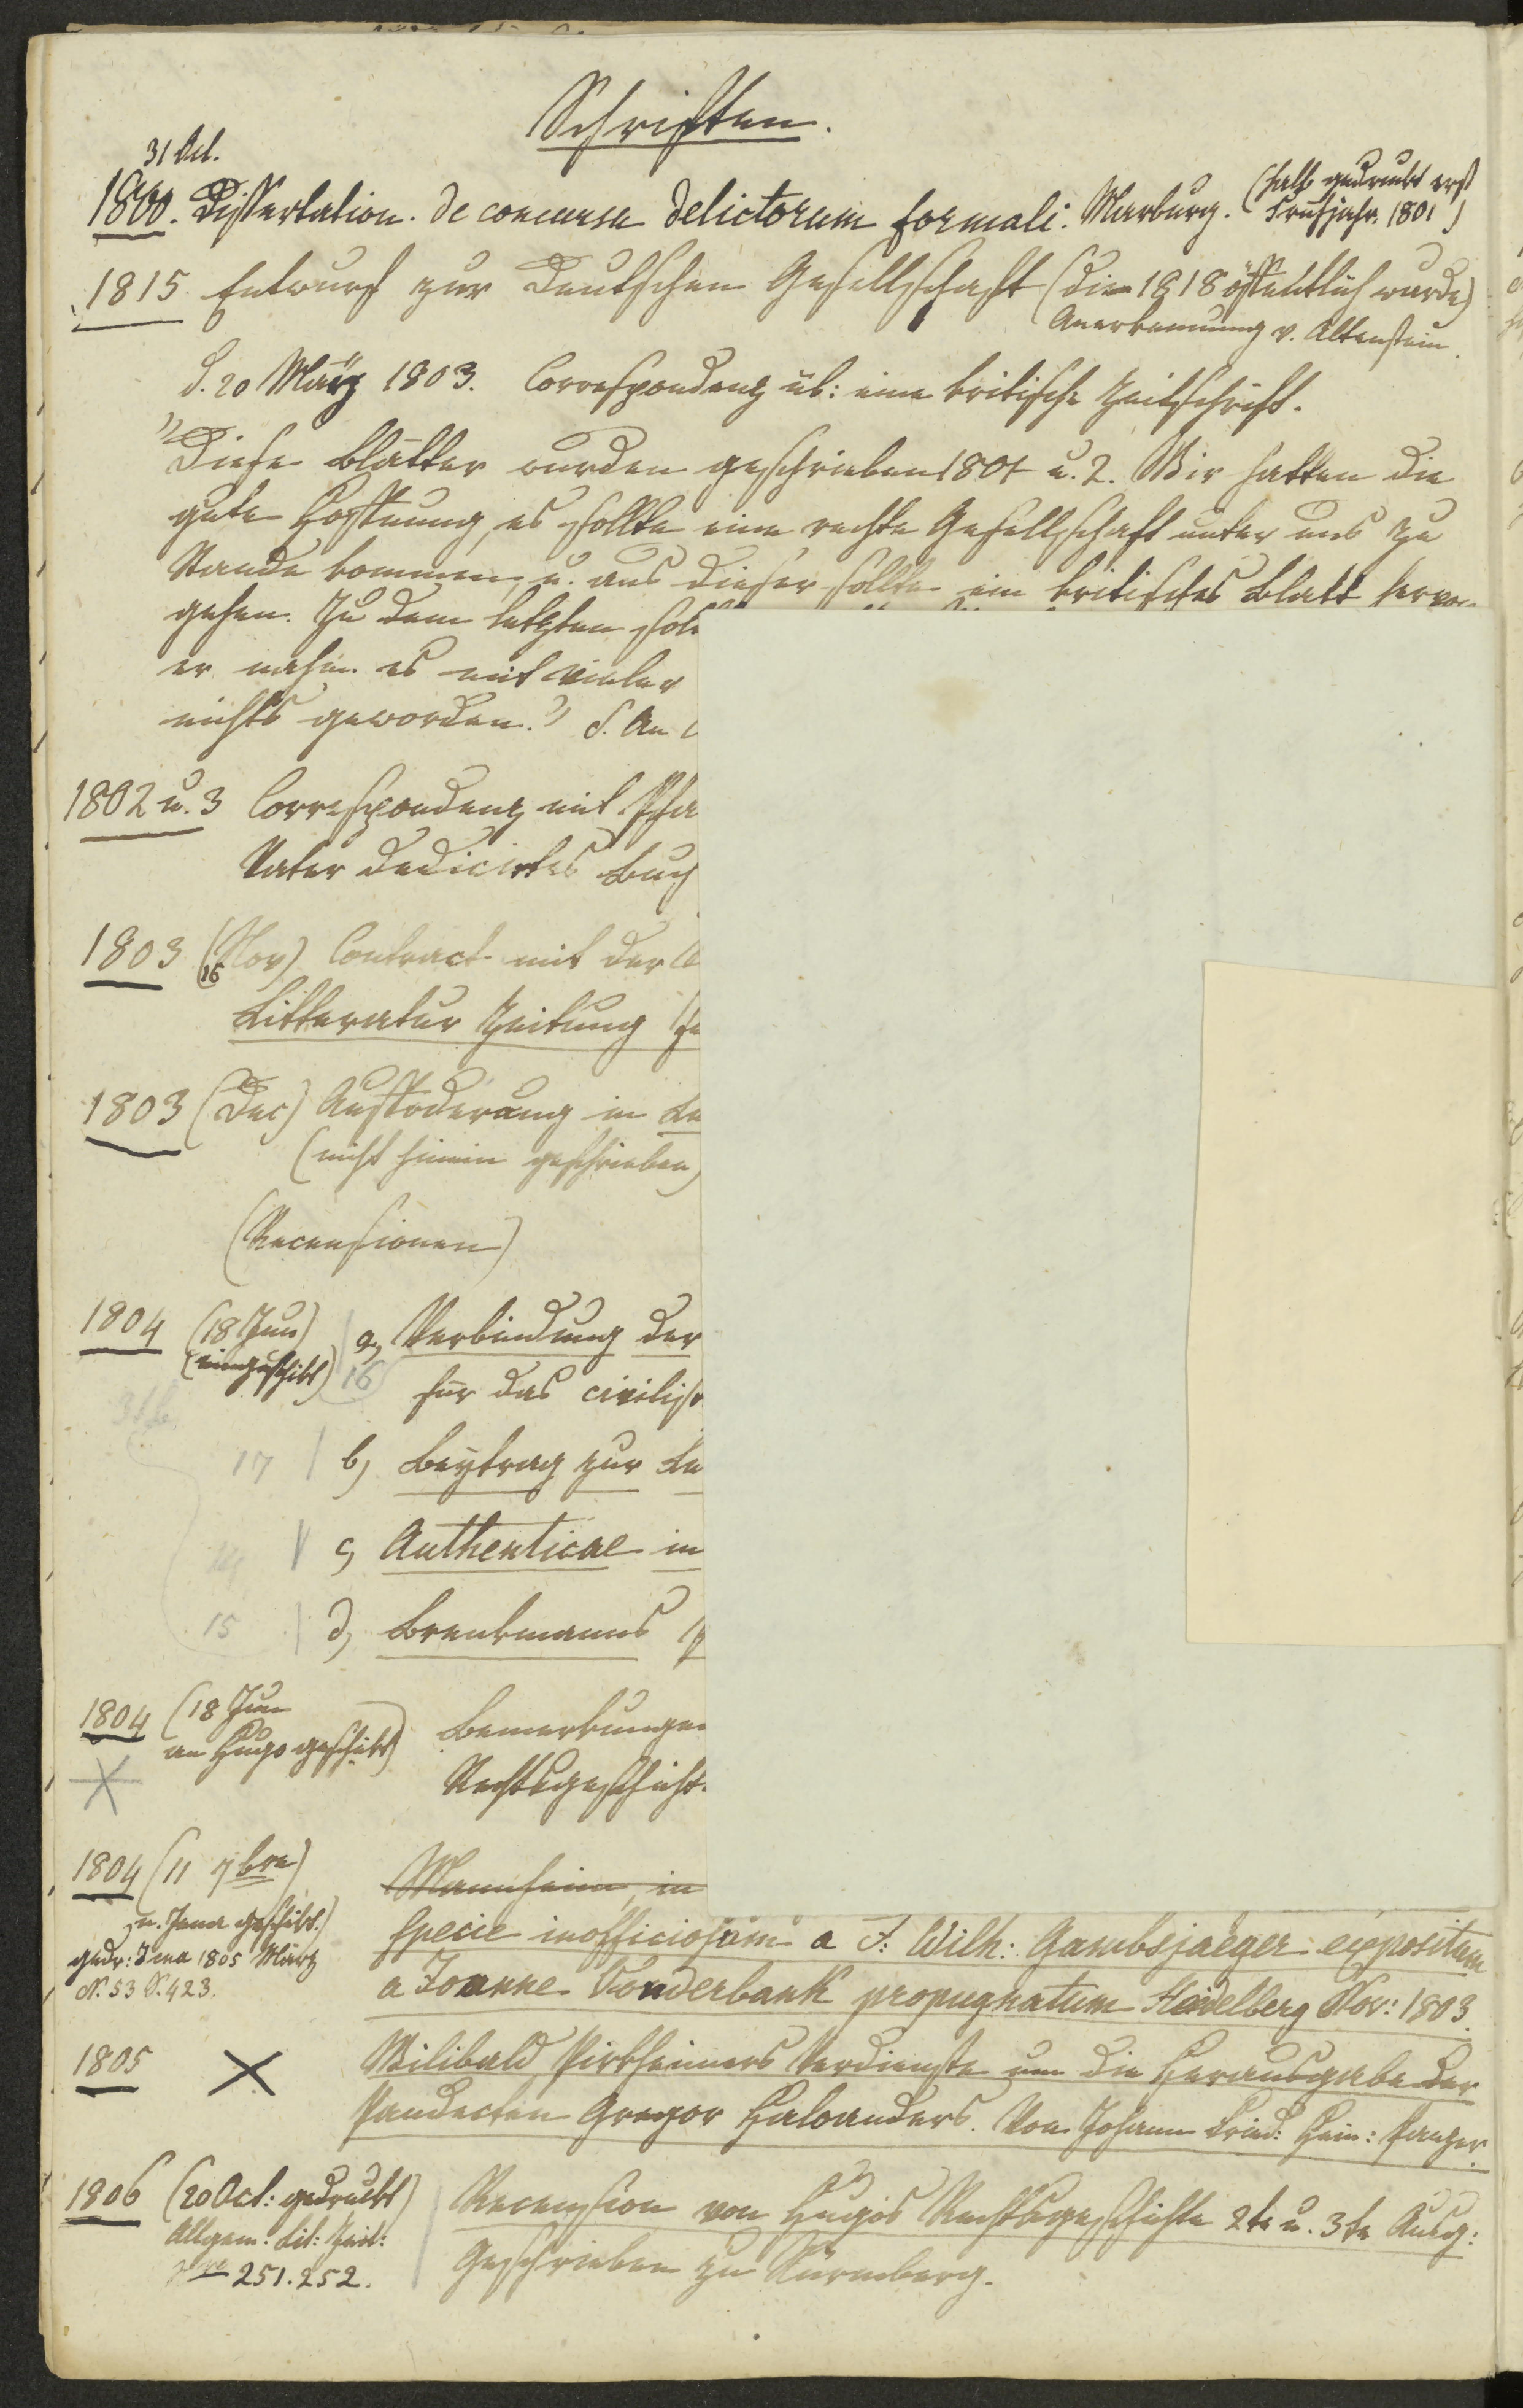 Schriften.
31 Oct.
1800. Dissertation. De concursu delictorum formali. Marburg. (halb gedruckt erst
Frühjahr. 1801)
1815 Entwurf zur Deutschen Gesellschaft (die 1818 öffentlich wurde)
Anerkennung v. Altenstein.
S. 20 März 1803. Correspondenz üb: eine kritische Zeitschrift.
"Diese Blätter wurden geschrieben 1801 u. 2. Wir hatten die
gute Hoffnung, es sollte eine rechte Gesellschaft unter uns zu
Stande kommen, u. aus dieser sollte ein kritisches Blatt hervor-
gehen. Zu dem letzten
er nahm es mit vieler
nichts geworden." S. An
1802 u. 3 Correspondenz mit
Vater dedicirtes Buch
1803 (16 Nov) Contract mit der
Litteratur Zeitung
1803 (Dec) Aufforderung in
(nicht hinein geschrieben)
(Recensionen)
1804 (18 Jun) a, Verbindung der
(eingeschickt) 16 für das civilist
17 b, Beytrag zur
c, Authenticae in
15 d, Brenkmanns
1804 (18 Jun Bemerkungen
an Hugo geschickt) Rechtsgeschicht
1804 (11 7bre) Mannheim, in
n. Jena geschickt.) specie inofficiosum a F. Wilh: Gambsjaeger expositum
gedr: Jena 1805 März
N. 53 S. 423. a Joanne Vonderbank propugnatum Heidelberg Nov: 1803.
1805 Wilibald Pirkheimers Verdienste um die Herausgabe der
Pandecten Gregor Haloanders. Von Johann Fried: Hein: Panzer.
1806 (20 Oct: gedruckt) Recension von Hugos Rechtsgeschichte 2te u. 3te Ausg:
Allgem: Lit: Zeit: Geschrieben zu Nürnberg.
251. 252.